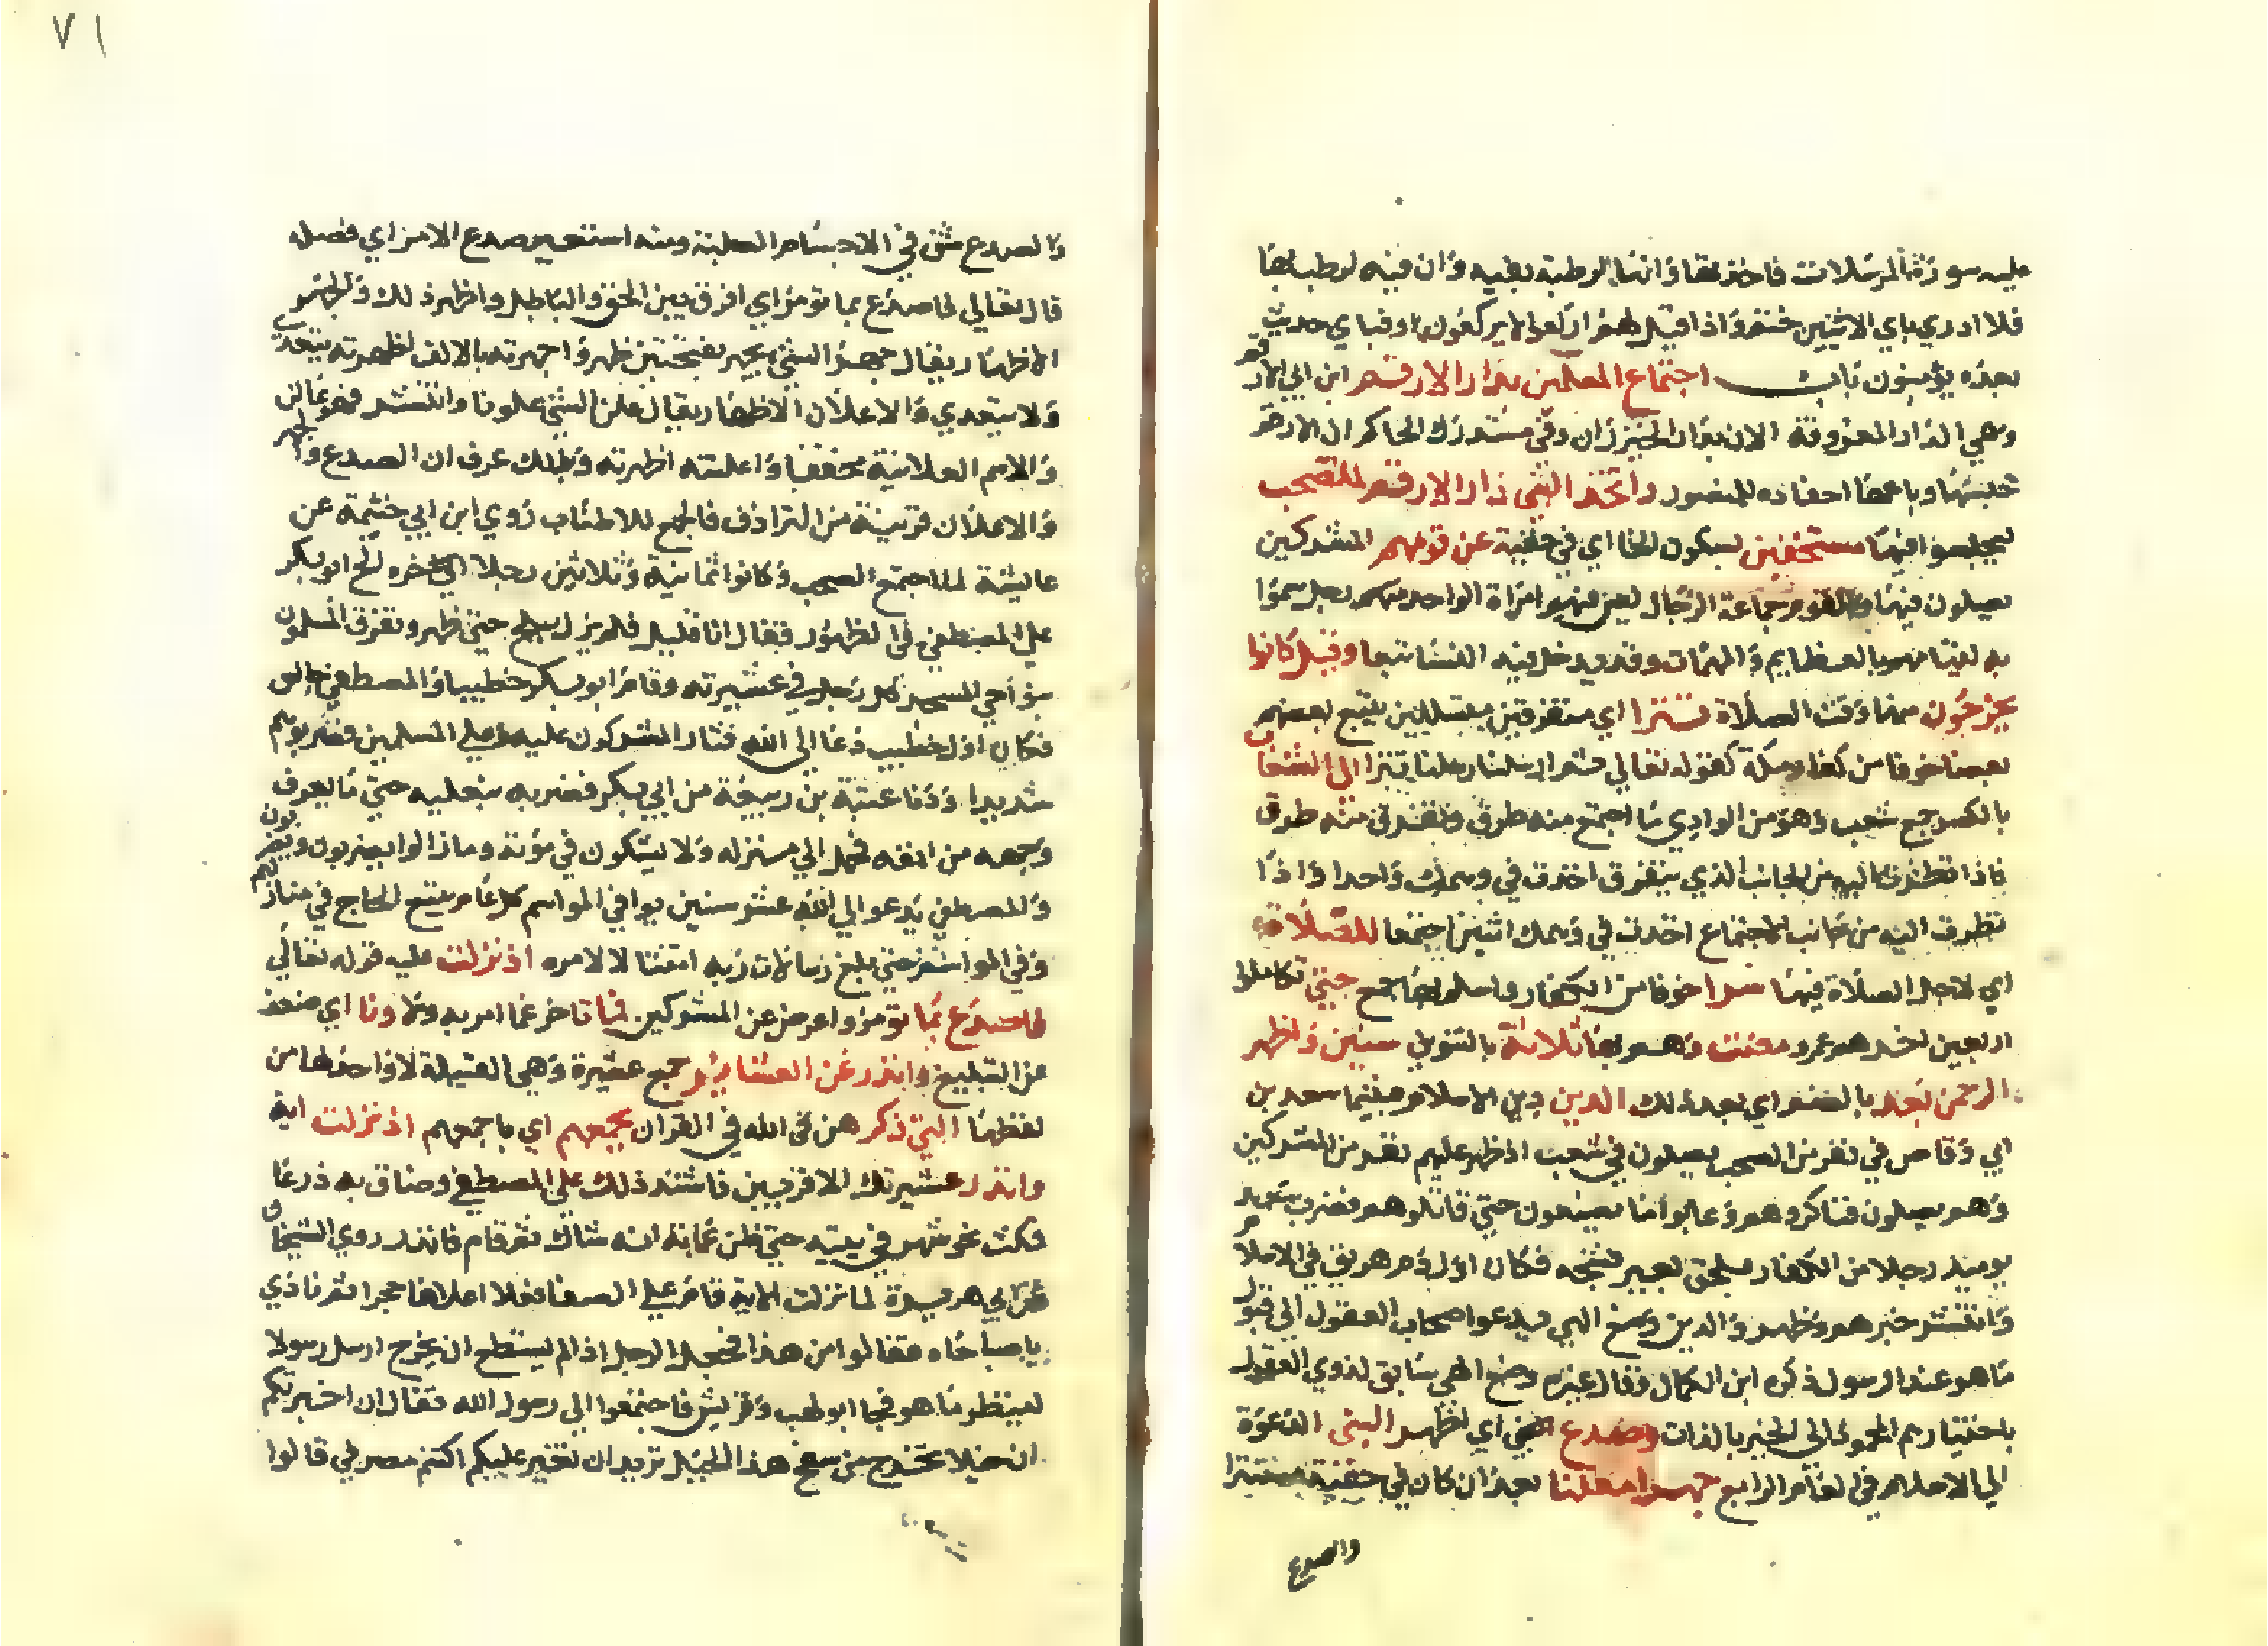 عليه سورة المرسلات فاخذتها وانها لرطبة بفيه وان فيه لرطب بها
فلا ادري باي الاثنين ختم واذا قيل لهم اركعوا لا يركعون او فباي حديث
بعده يؤمنون باب اجتماع المسلمين بدار الارقم ابن ابي الارقم
وهي الدار المعروفة الان بدار الخيزران وفي مستدرك الحاكم ان الارقم
حبسها وباعها احفاده للمنصور واتخذ النبي دار الارقم للصحب
ليجلسوا فيها مستخفين بسكون الخا اي في خفية عن قومهم المشركين
يصلون فيها والقوم جماعة الرجال ليس فيهم امراة الواحد منهم رجل سموا
به لقيامهم بالعظايم والمهمات وقد يدخل فيه النسا تبعا وقيل كانوا
يخرجون منها وقت الصلاة تترا اي متفرقين متسللين يتبع بعضهم
بعضا خوفا من كفار مكة كقوله تعالي ثم ارسلنا رسلنا تترا الي الشعاب
بالكسر جمع شعب وهو من الوادي ما اجتمع منه طرف وتفرق منه طرف
فاذا نظرت اليه من الجانب الذي يتفرق اخذت في وهمك واحدا واذا
نظرت اليه من جانب الاجتماع اخذت في وهمك اثنين اجتمعا للصلاة
اي لاجل الصلاة فيها سرا خوفا من الكفار واسلم بها جمع حتي تكاملوا
اربعين اخرهم عمر ومضت وهم بها ثلاثة بالتنوين سنين واظهر
الرحمن بعد بالضم اي بعد ذلك الدين دين الاسلام فبينما سعد بن
ابي وقاص في نفر من الصحب يصلون في شعب اذ ظهر عليهم نفر من المشركين
وهم يصلون فناكروهم وعابوا ما يصنعون حتي قاتلوهم فضرب سعد
يومئذ رجلا من الكفار بلحي بعير فشجه فكان اول دم هريق في الاسلام
وانتشر خبرهم وظهر والدين وضع الهي يدعوا اصحاب العقول الي قبول
ما هو عند الرسول ذكره ابن الكمال وقال غيره وضع الهي سايق لذوي العقول
باختيارهم المحمود الي الخير بالذات وصدع النبي اي اظهر النبي الدعوة
الي الاسلام في العام الرابع جهرا معلنا بعد ان كان في خفية مستترا
والصدع
٧١
والصدع شق في الاجسام الصلبة ومنه استعير صدع الامر اي فصله
قال تعالي فاصدع بما تؤمر اي افرق بين الحق والباطل واظهر ذلك والجهر
الاظهار يقال جهر الشي يجهر بفتحتين ظهر واجهرته بالالف اظهرته يتعدي
ولا يتعدي والاعلان الاظهار يقال علن الشي علونا وانتشر فهو عالن
والاسم العلانية مخففا واعلنته اظهرته وبذلك عرف ان الصدع والجهر
والاعلان قريبة من الترادف فالجمع للاطناب روي ابن ابي خيثمة عن
عايشة لما اجتمع الصحب وكانوا ثمانية وثلاثين رجلا الي اخره الح ابو بكر
علي المصطفي في الظهور فقال انا قليل فلم يزل يلح حتي ظهر وتفرق المسلمون
بنواحي المسجد كل رجل في عشيرته وقام ابو بكر خطيبا والمصطفي جالس
فكان اول خطيب دعا الي الله فثار المشركون عليه وعلي المسلمين فضربوهم
شديدا ودنا عتبة بن ربيعة من ابي بكر فضربه بنعليه حتي ما يعرف
وجهه من انفه فحمل الي منزله ولا يشكون في موته وما زالوا يضربون ويضربون
والمصطفي يدعوا الي الله عشر سنين يوافي المواسم كل عام يتبع الحاج في منازلهم
وفي المواسم حتي بلغ رسالات ربه امتثالا لامره اذ نزلت عليه قوله تعالي
فاصدع بما تؤمر واعرض عن المشركين فما تاخر عما امر به ولا ونا اي ضعف
عن التبليغ وانذر عن العشاير جمع عشيرة وهي القبيلة لا واحد لها من
لفظها التي ذكر هن في الله في القران بجمعهم اي باجمعهم اذ نزلت اية
وانذر عشيرتك الاقربين فاشتد ذلك علي المصطفي وضاق به ذرعا
فمكث نحو شهر في بيته حتي ظن عماته انه شاك ثم قام فانذر روي الشيخان
عن ابي هريرة لما نزلت الاية قام علي الصفا فعلا اعلاها حجرا ثم نادي
يا صباحاه فقالوا من هذا فجعل الرجل اذا لم يستطع ان يخرج ارسل رسولا
لينظر ما هو فجا ابو لهب وقريش فاجتمعوا الي رسول الله فقال ان اخبرتكم
ان خيلا تخرج من سفح هذا الجبل تريد ان تغير عليكم اكنتم مصدقي قالوا